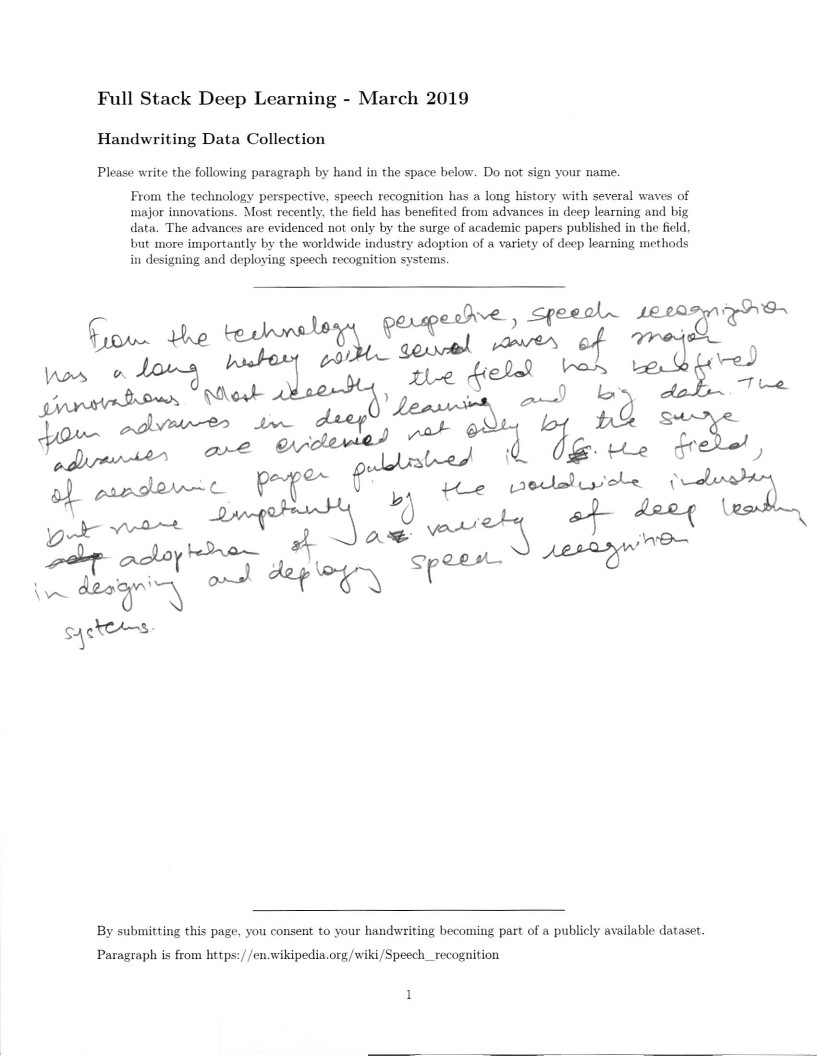 Full Stack Deep Learning - March 2019
Handwriting Data Collection
Please write the following paragraph by hand in the space below. Do not sign your name.
From the technology perspective, speech recognition has a long history with several waves of
major innovations. Most recently, the field has benefited from advances in deep learning and big
data. The advances are evidenced not only by the surge of academic papers published in the field,
but more importantly by the worldwide industry adoption of a variety of deep learning methods
in designing and deploying speech recognition systems.
From the technology perspective, speech recognition
has a long history with several waves of major
innovations. Most recently, the field has benefited
from advances in deep learning and big data. The
advances are evidenced not only by the surge
of academic paper published in the field,
but more importantly by the worldwide industry
adoption of a variety of deep learning
in designing and deploying speech recognition
systems.
By submitting this page, you consent to your handwriting becoming part of a publicly available dataset.
Paragraph is from https://en.wikipedia.org/wiki/Speech_recognition
1